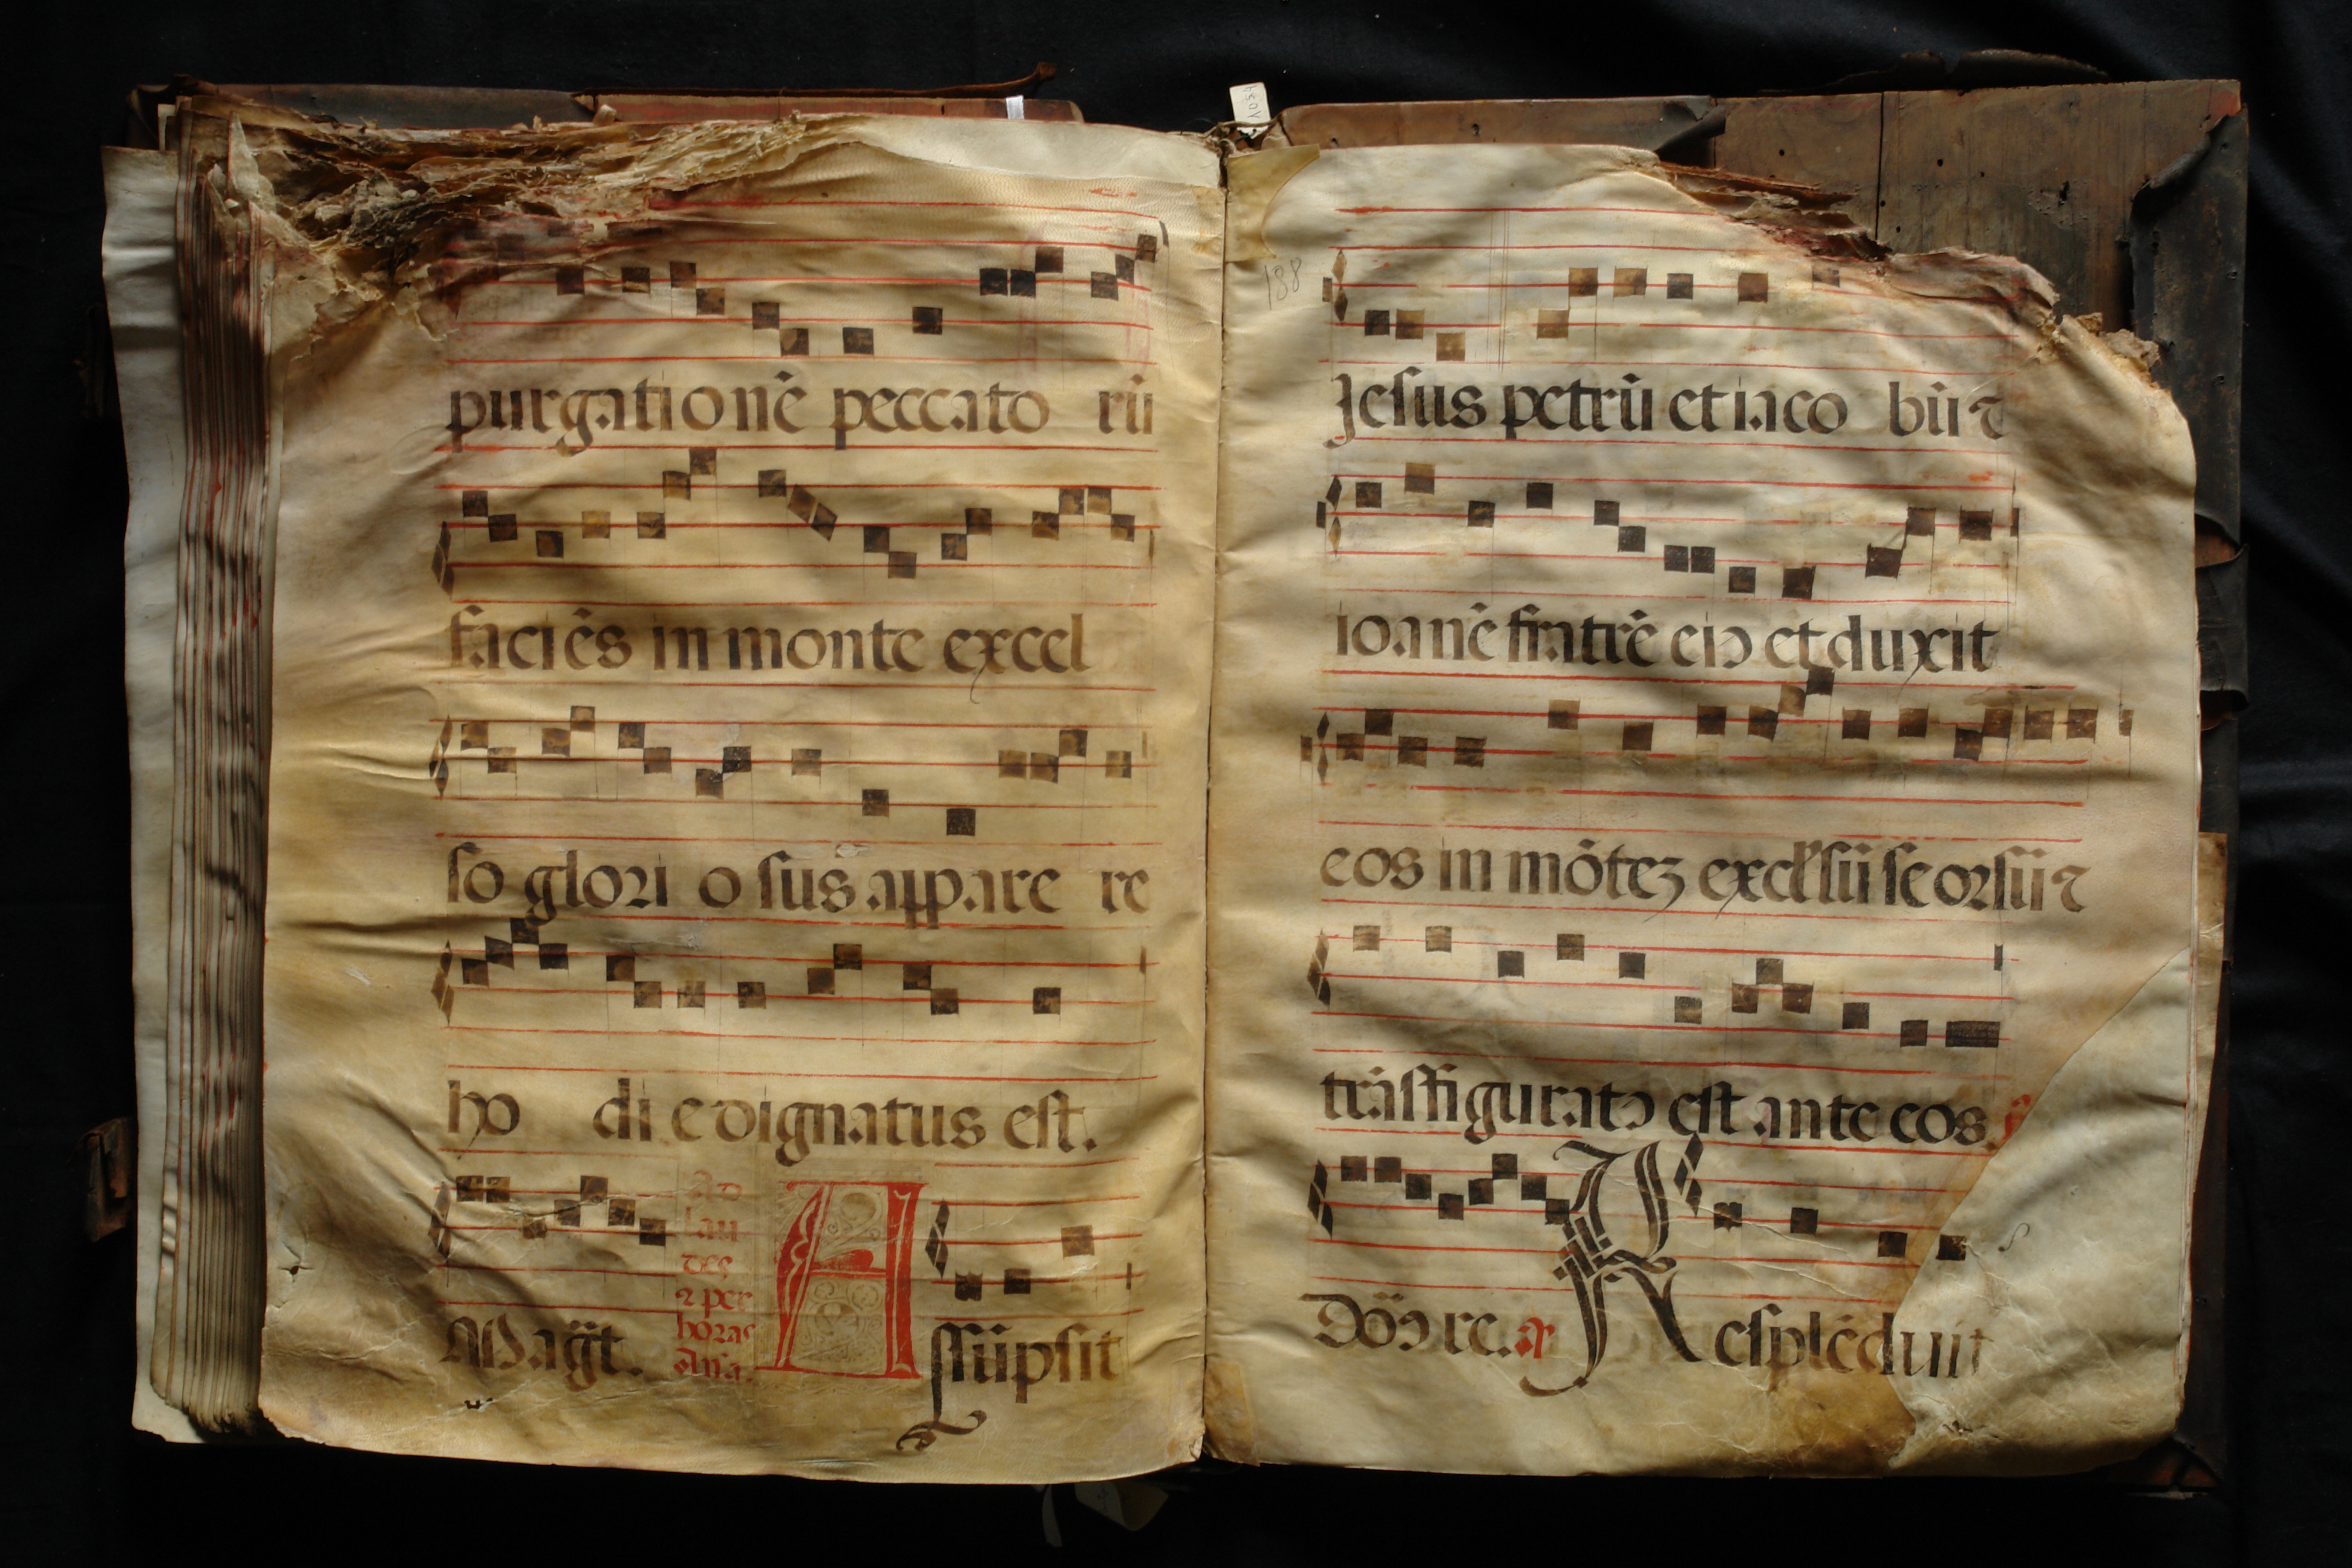 purgationē peccato rū
faciēs in monte excel
so glori o sus appare re
ho di e dignatus est.
Ad
lau
des
⁊ per
horas
Aña.
Magt̄. Assūpsit
188
Jesus petrū et iaco bū ⁊
ioanē fratrē eiꝰ et duxit
eos in mōteꝫ excelsū seorsū ⁊
trāsfiguratꝰ est ante eos.
Dōꝰ re. Resplēduit